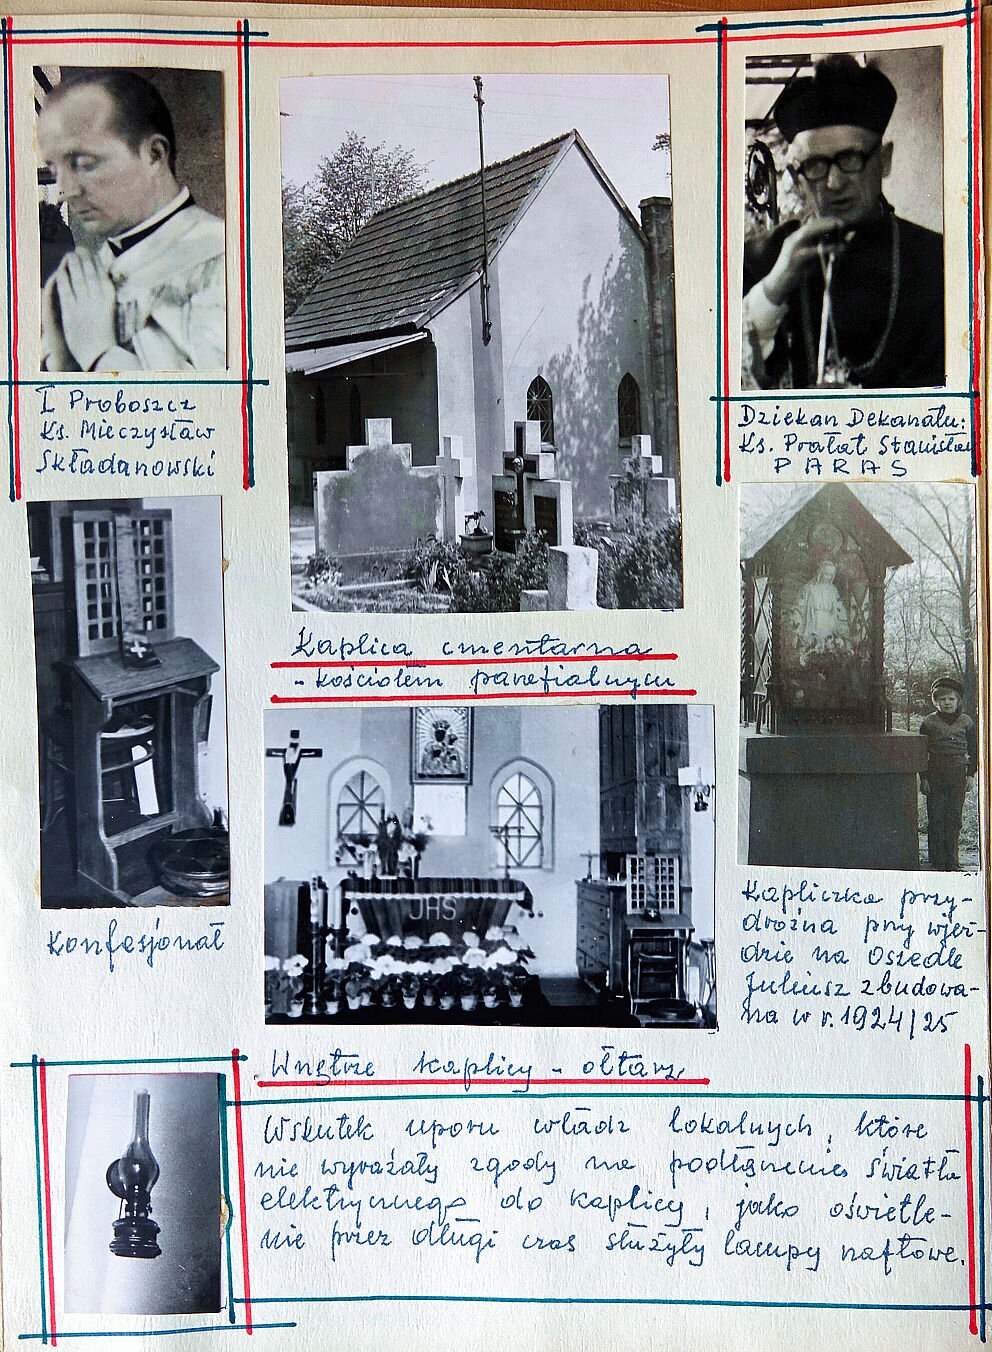 I Proboszcz
Ks. Mieczysław
Składanowski
Dziekan Dekanatu:
Ks. Prałat Stanisław
PARAS
Kaplica cmentarna
- kościołem parafialnym
Konfesjonał
JHS
Kapliczka przy-
drożna przy wjeź-
dzie na Osiedle
Juliusz zbudowa-
na w r. 1924/25
Wnętrze kaplicy - ołtarz
Wskutek uporu władz lokalnych, które
nie wyrażały zgody na podłączenie światła
elektrycznego do kaplicy, jako oświetle-
nie przez długi czas służyły lampy naftowe.